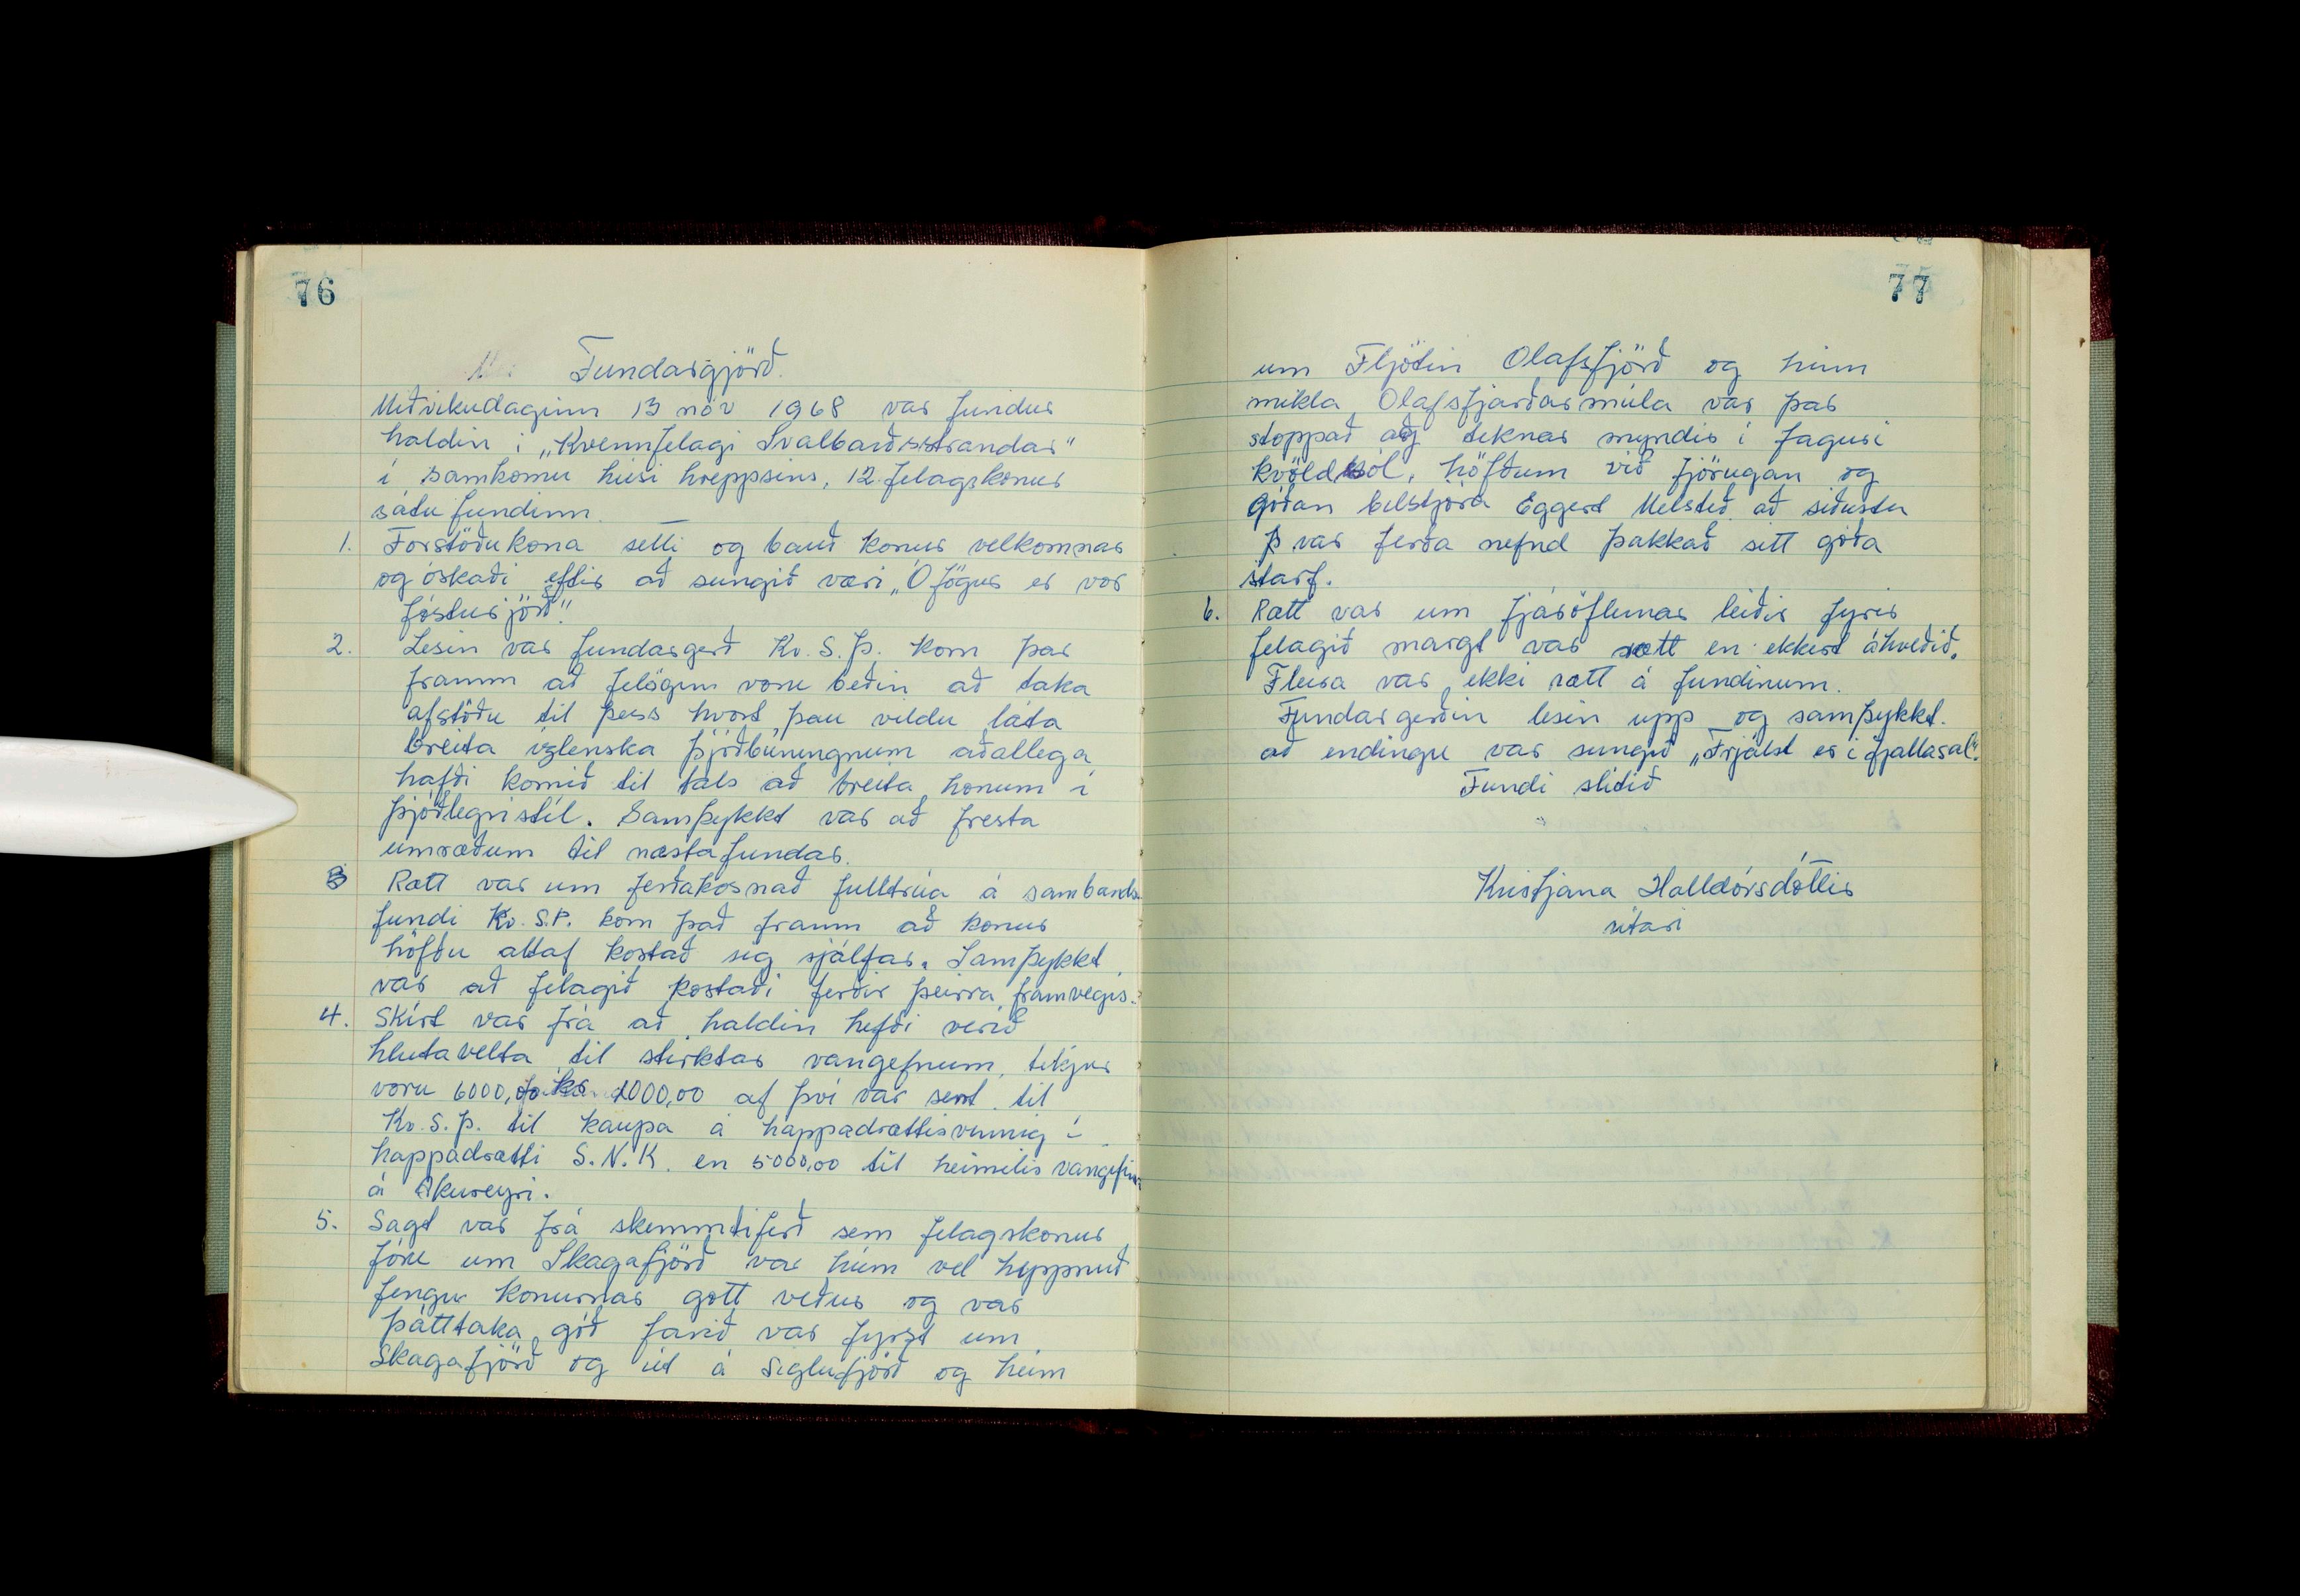 76
Fundargjörð.
Miðvikudaginn 13 nóv 1968 var fundur
haldin í „Kvennfelagi Svalbarðsstrandar"
í samkomu húsi hreppsins, 12 felagskonur
sátu fundinn.
1. Forstöðukona setti og bauð konur velkomnar
og óskaði eftir að sungið væri „Ó fögur er vor
fósturjörð".
2. Lesin var fundargerð Kv. S. Þ. kom þar
framm að felögum voru beðin að taka
afstöðu til þess hvort þau vildu láta
breita izlenska þjóðbúningnum aðallega
hafði komið til tals að breita honum í
þjóðlegri stíl. Samþykkt var að fresta
umræðum til næsta fundar.
3 Rætt var um ferðakosnað fulltrúa á sambands
fundi Kv. S.Þ. kom það framm að konur
höfðu altaf kostað sig sjálfar. Samþykkt
var að felagið kostaði ferðir þeirra framvegis.
4. Skírt var frá að haldin hefði verið
hlutavelta til stirktar vangefnum, tekjur
voru 6000,00 kr 1000,00 af því var sent til
Kv. S. Þ. til kaupa á happadrættisvinnig í
happadrætti S. N. K. en 5000,00 til heimilis
á Akureyri.
5. Sagt var frá skemmtiferð sem felagskonur
fóru um Skagafjörð var húm vel heppnuð
fengu konurnar gott veður og var
þátttaka góð farið var fyrzt um
Skagafjörð og út á Siglufjörð og heim
77
um Fljótin Olafsfjörð og hinn
mikla Olafsfjarðarmúla var þar
stoppað og teknar myndir í faguri
kvöldsól, höfðum við fjörugan og
góðan bilstjóra Eggert Melsteð að siðustu
var ferða nefnd þakkað sitt góða
starf.
6. Rætt var um fjáröflunar leiðir fyrir
felagið margt var rætt en ekkert áhveðið.
Fleira var ekki rætt á fundinum.
Fundargerðin lesin upp og samþykkt.
að endingu var sungið „Frjálst er í fjallasal".
Fundi slitið
Kristjana Halldórsdóttir
ritari